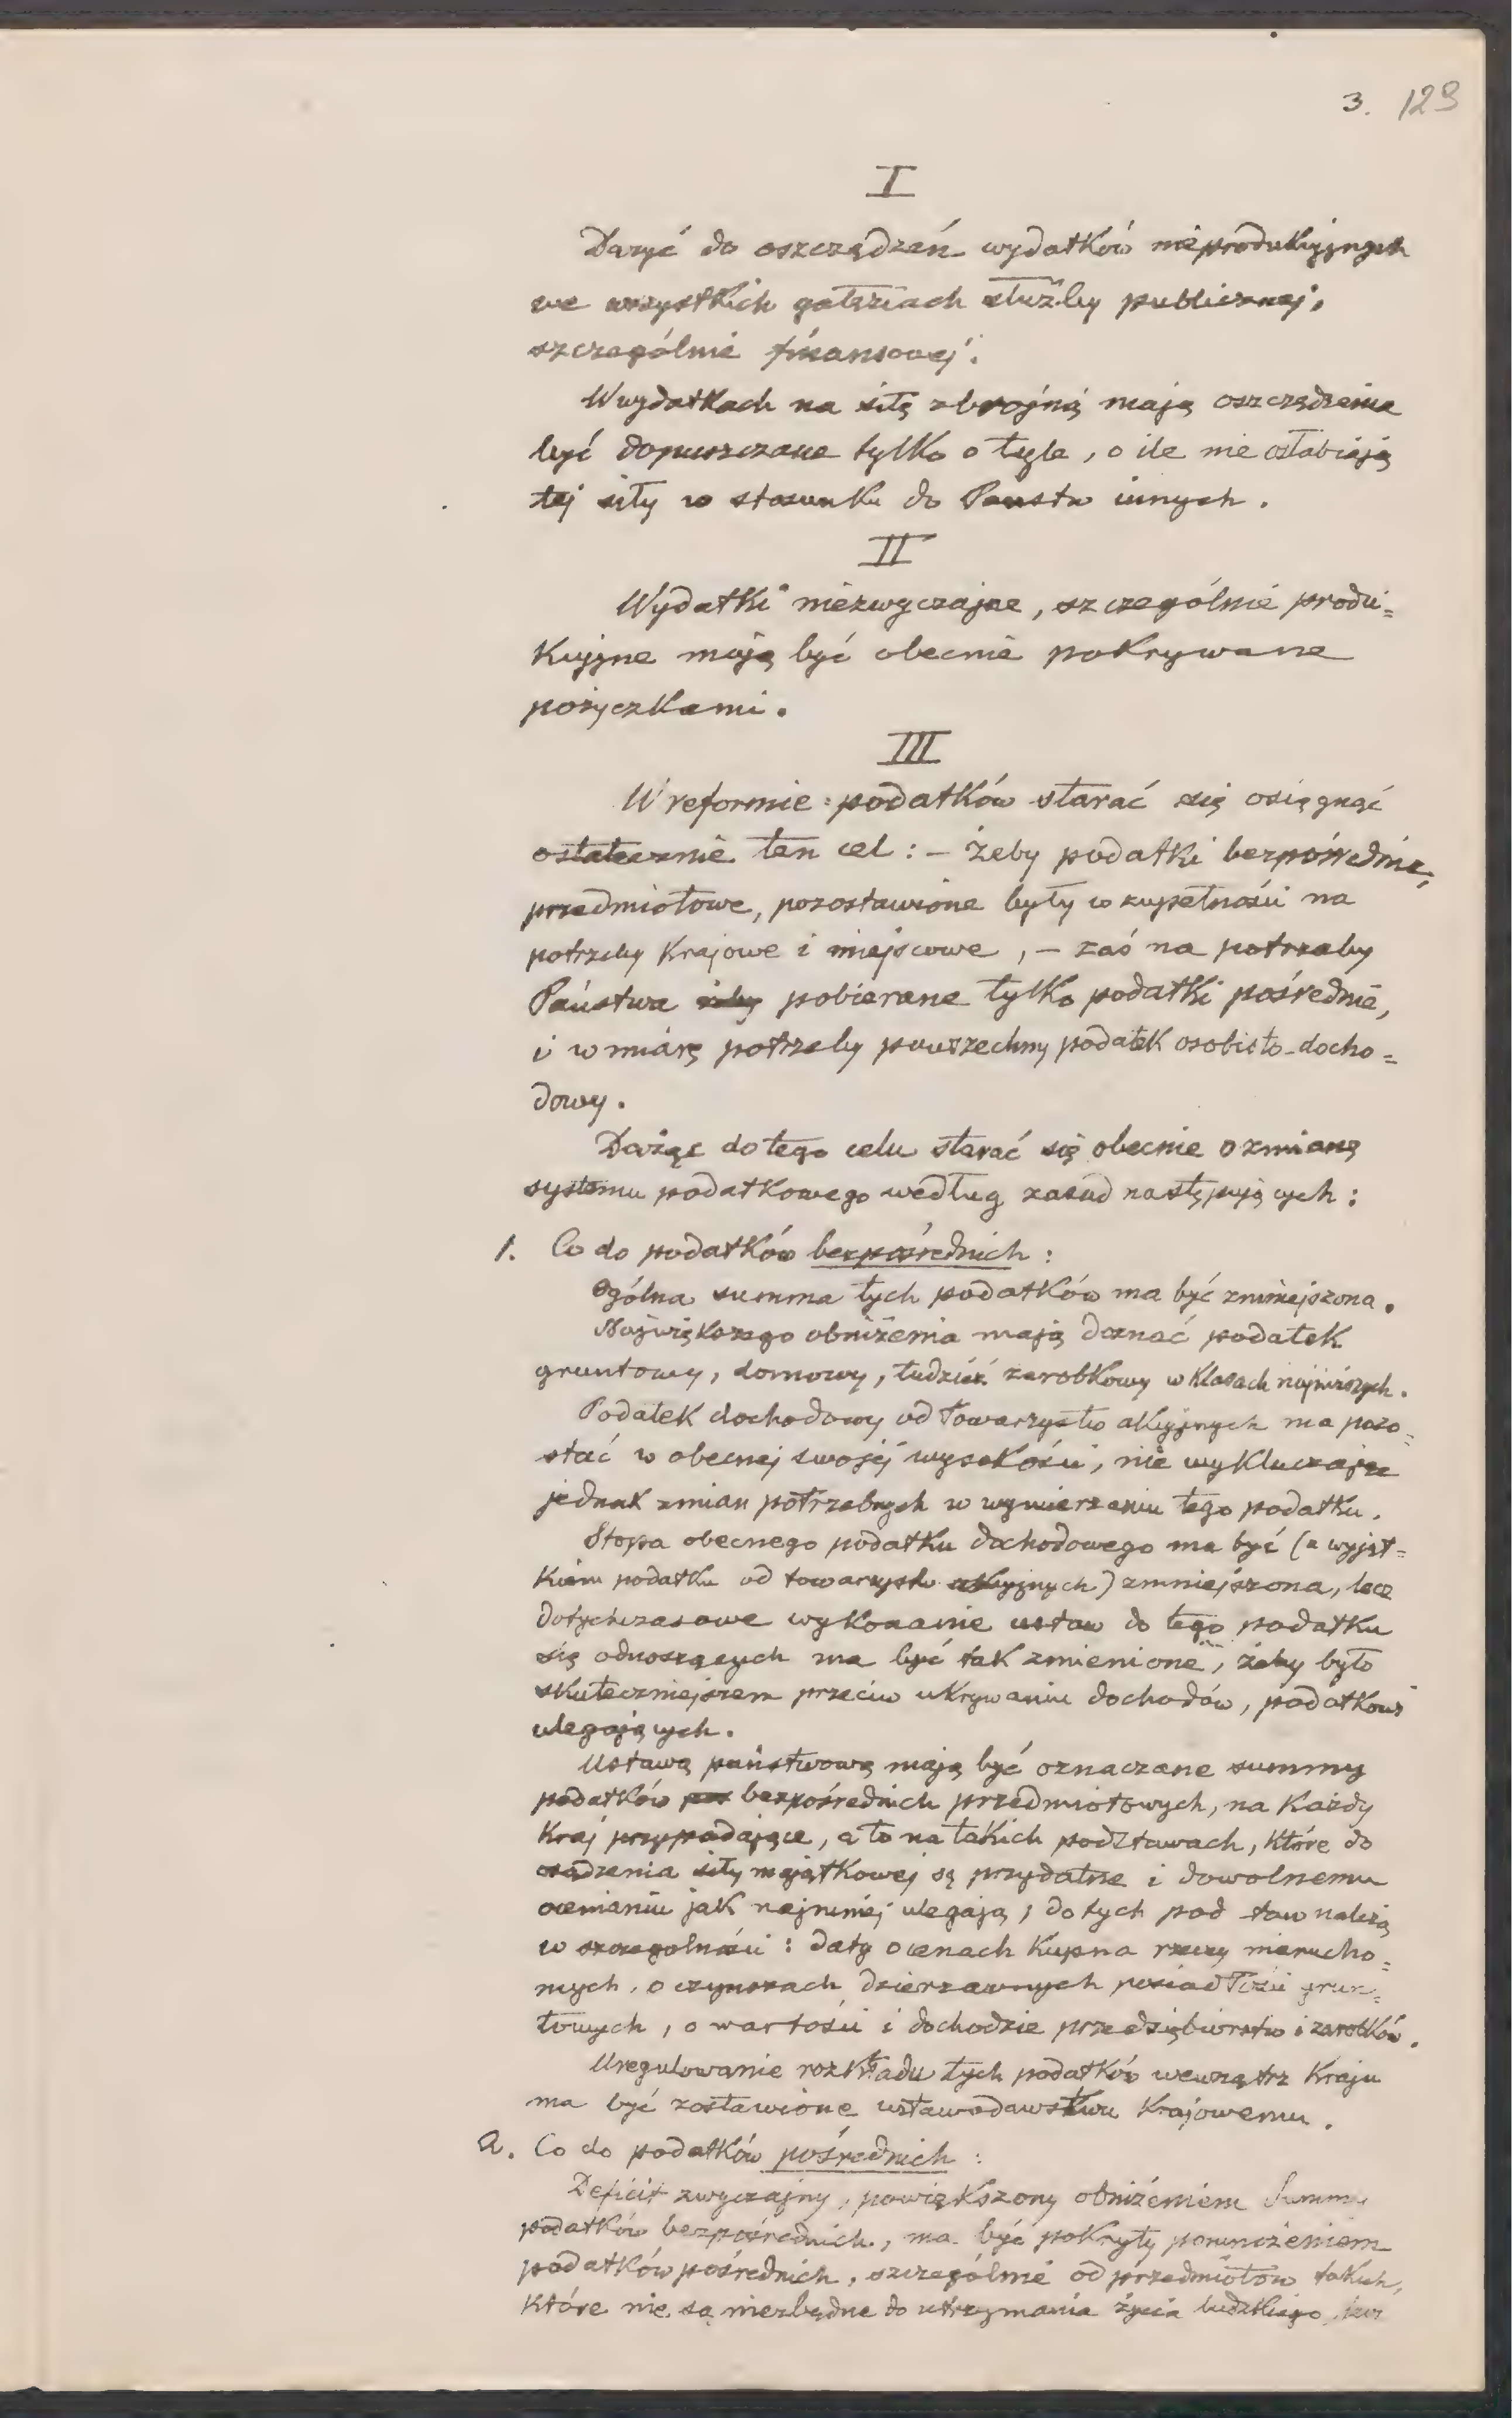 3. 129
I
Dążyć do oszczędzeń wydatków nieprodukcyjnych
we wszystkich gałęziach służby publicznej,
szczególnie finansowej.
W wydatkach na siłę zbrojną mają oszczędzenia
być dopuszczane tylko o tyle, o ile nie osłabiają
tej siły w stosunku do Państw innych.
II
Wydatki niezwyczajne, szczególnie produ=
kcyjne mają być obecnie pokrywane
pożyczkami.
III
W reformie podatków starać się osiągnąć
ostatecznie ten cel: – żeby podatki bezpośrednie,
przedmiotowe, pozostawione były w zupełności na
potrzeby krajowe i miejscowe, – zaś na potrzeby
Państwa pobierane tylko podatki pośrednie,
i w miarę potrzeby powszechny podatek osobisto-docho=
dowy.
Dążąc do tego celu starać się obecnie o zmianę
systemu podatkowego według zasad następujących:
1. Co do podatków bezpośrednich:
Ogólna summa tych podatków ma być zmniejszona.
Największego obniżenia mają doznać podatek
gruntowy, domowy, tudzież zarobkowy w klasach najniższych.
Podatek dochodowy od Towarzystw akcyjnych ma pozo=
stać w obecnej swojej wysokości, nie wykluczając
jednak zmian potrzebnych w wymierzaniu tego podatku.
Stopa obecnego podatku dochodowego ma być (z wyjąt=
kiem podatku od towarzystw akcyjnych) zmniejszona, lecz
dotychczasowe wykonanie ustaw do tego podatku
się odnoszących ma być tak zmienione, żeby było
skuteczniejszem przeciw ukrywaniu dochodów, podatkowi
ulegających.
Ustawą państwową mają być oznaczane summy
podatków bezpośrednich przedmiotowych, na każdy
kraj przypadające, a to na takich podstawach, które do
osądzenia siły majątkowej są przydatne i dowolnemu
ocenianiu jak najmniej ulegają; do tych podstaw należą
w szczególności: daty o cenach kupna rzeczy nierucho=
mych, o czynszach dzierżawnych posiadłości grun=
towych, o wartości i dochodzie przedsiębiorstw i zarobków.
Uregulowanie rozkładu tych podatków wewnątrz Kraju
ma być zostawione ustawodawstwu Krajowemu.
2. Co do podatków pośrednich:
Deficit zwyczajny, powiększony obniżeniem Summy
podatków bezpośrednich, ma być pokryty pomnożeniem
podatków pośrednich, szczególnie od przedmiotów takich,
które nie są niezbędne do utrzymania życia ludzkiego,